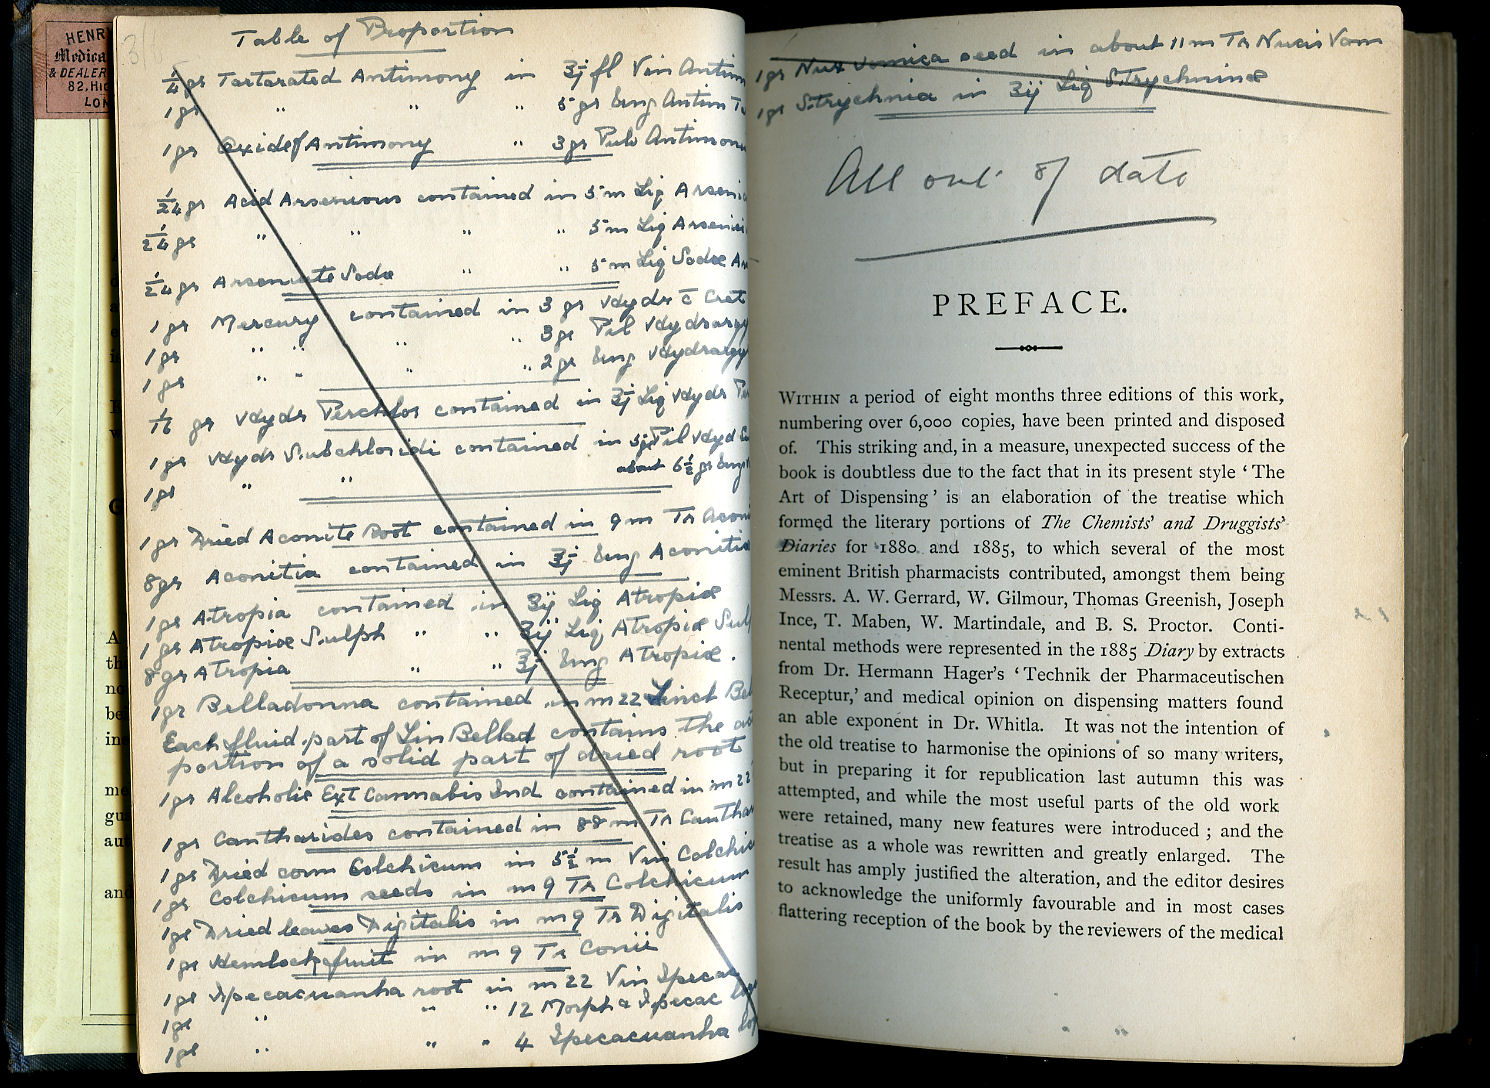 HENR
Medica
& DEALER
82, HIG
LON
Table of Proportion
1/4 gr Tartarated Antimony in ʒj fl Vin Antim
1 gr " " " 5 gr Ung Antim T
1 gr Oxide of Antimony " 3 gr Pulv Antimon
1/24 gr Acid Arsenious contained in 5 m Liq Arseni
1/24 gr " " " " 5 m Liq Arsenici
1/24 gr Arseniate Soda " " 5 m Liq Sodæ Ar
1 gr Mercury contained in 3 gr Hydr c̄ Cret
1 gr " " " " 3 gr Pil Hydrarg
1 gr " " " " 2 gr Ung Hydrarg
gr Hydr Perchlor contained in ʒj Liq Hydr Pe
1 gr Hydr Subchloridi contained in 5 gr Pil Hyd
1 gr " " about 6½ gr Ung
1 gr Dried Aconite Root contained in 9 m Tr Aconi
8 gr Aconitia contained in ʒj Ung Aconitia
1 gr Atropia contained in ʒij Liq Atropiæ
1 gr Atropiæ Sulph " " ʒij Liq Atropiæ Sul
8 gr Atropia " " ʒj Ung Atropiæ.
1 gr Belladonna contained in m 22 Linct Bel
Each fluid part of Lin Bellad contains the
portion of a solid part of dried root
1 gr Alcoholic Ext Cannabis Ind contained in m 22
1 gr Cantharides contained in 88 m Tr Canthar
1 gr Dried corm Colchicum in 5½ m Vin Colchic
1 gr Colchicum seeds in m 9 Tr Colchicum
1 gr Dried leaves Digitalis in m 9 Tr Digitalis
1 gr Hemlock fruit in m 9 Tr Conii
1 gr Ipecacuanha root in m 22 Vin Ipecac
1 gr " " " 12 Morph & Ipecac Loz
1 gr " " " 4 Ipecacuanha Loz
1 gr Nux Vomica seed in about 11 m Tr Nucis Vom
1 gr Strychnia in ʒij Liq Strychninæ
All out of date
PREFACE.
WITHIN a period of eight months three editions of this work,
numbering over 6,000 copies, have been printed and disposed
of. This striking and, in a measure, unexpected success of the
book is doubtless due to the fact that in its present style ‘The
Art of Dispensing’ is an elaboration of the treatise which
formed the literary portions of The Chemists’ and Druggists’
Diaries for 1880 and 1885, to which several of the most
eminent British pharmacists contributed, amongst them being
Messrs. A. W. Gerrard, W. Gilmour, Thomas Greenish, Joseph
Ince, T. Maben, W. Martindale, and B. S. Proctor. Conti-
nental methods were represented in the 1885 Diary by extracts
from Dr. Hermann Hager’s ‘Technik der Pharmaceutischen
Receptur,’ and medical opinion on dispensing matters found
an able exponent in Dr. Whitla. It was not the intention of
the old treatise to harmonise the opinions of so many writers,
but in preparing it for republication last autumn this was
attempted, and while the most useful parts of the old work
were retained, many new features were introduced; and the
treatise as a whole was rewritten and greatly enlarged. The
result has amply justified the alteration, and the editor desires
to acknowledge the uniformly favourable and in most cases
flattering reception of the book by the reviewers of the medical